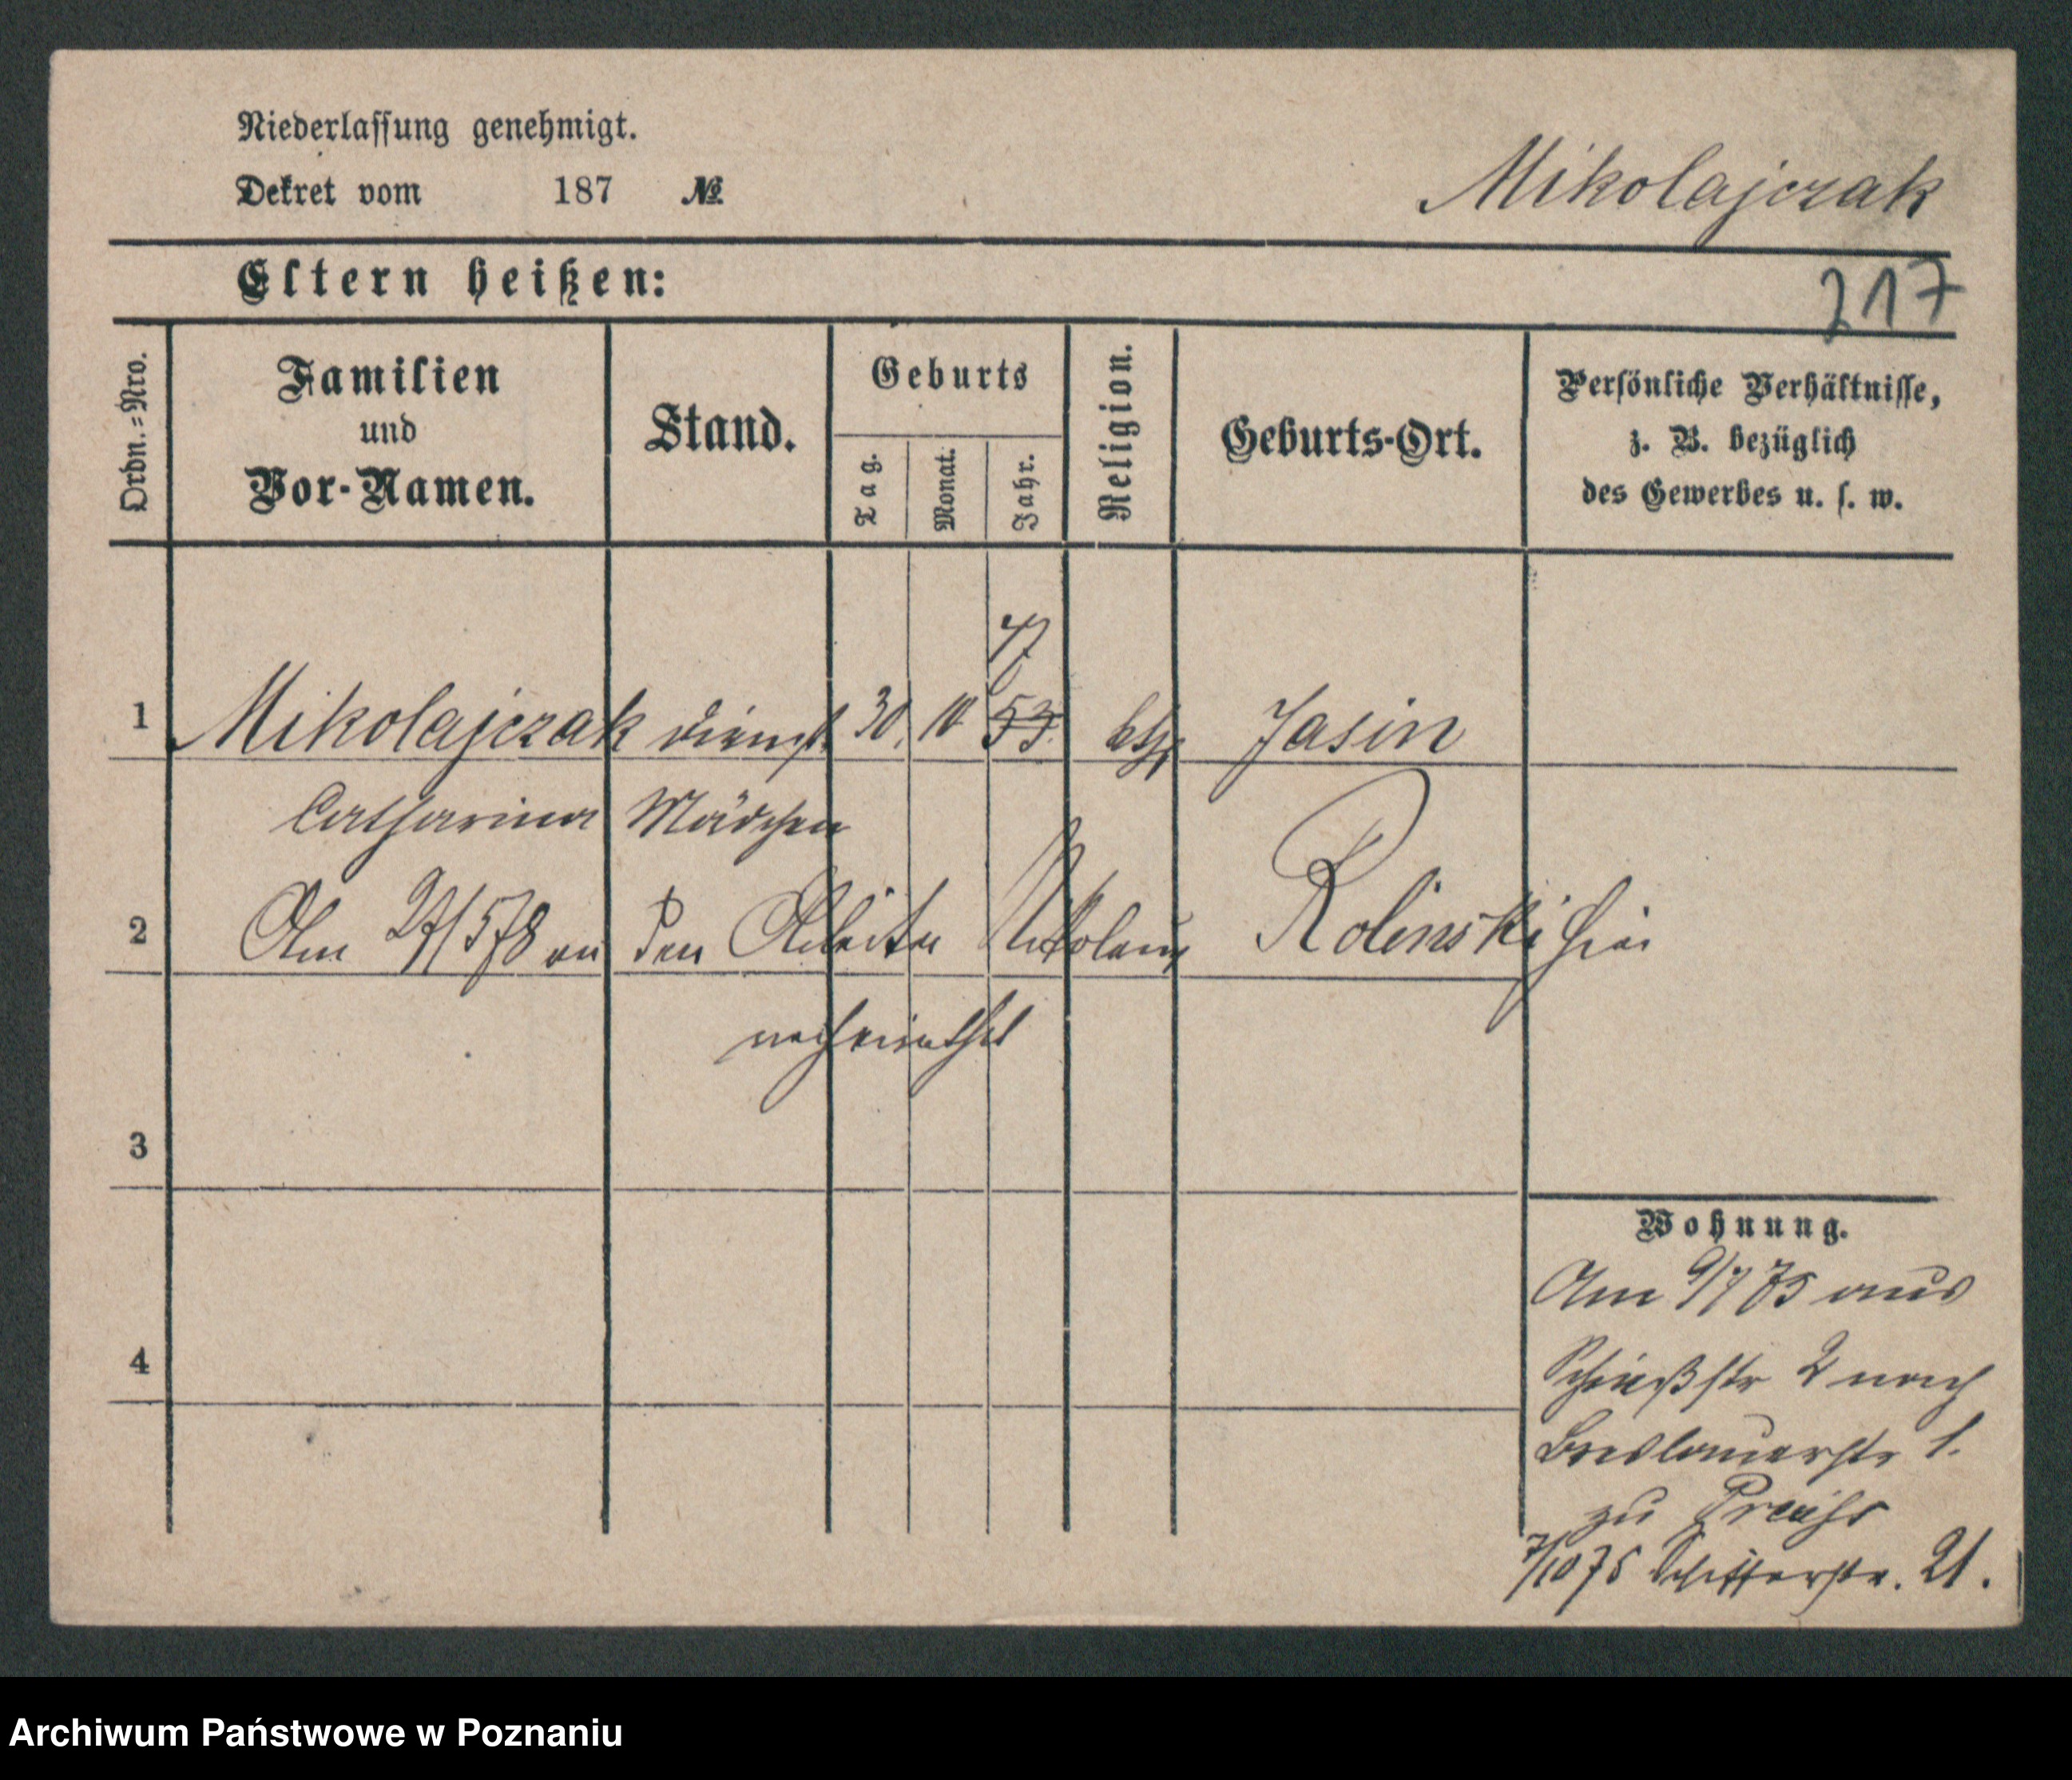 Niederlassung genehmigt.
Dekret vom 187 №
Mikolajczak
Eltern heißen:
217
Ordn.-Nro.
Familien
und
Vor-Namen.
Stand.
Geburts
Tag.
Monat.
Jahr.
Religion.
Geburts-Ort.
Persönliche Verhältnisse,
z. B. bezüglich
des Gewerbes u. s. w.
47
1 Mikolajczak Dienst 30. 10 53. kth Jasin
Catharina Mädchen
2 Am 27/5 78 an den Arbeiter Nikolaus Rolinski hier
verheirathet
3
Wohnung.
Am 9/7 75 aus
Schießstr 2 nach
4
Breslauerstr 1.
zu
7/10 75 21.
Archiwum Państwowe w Poznaniu